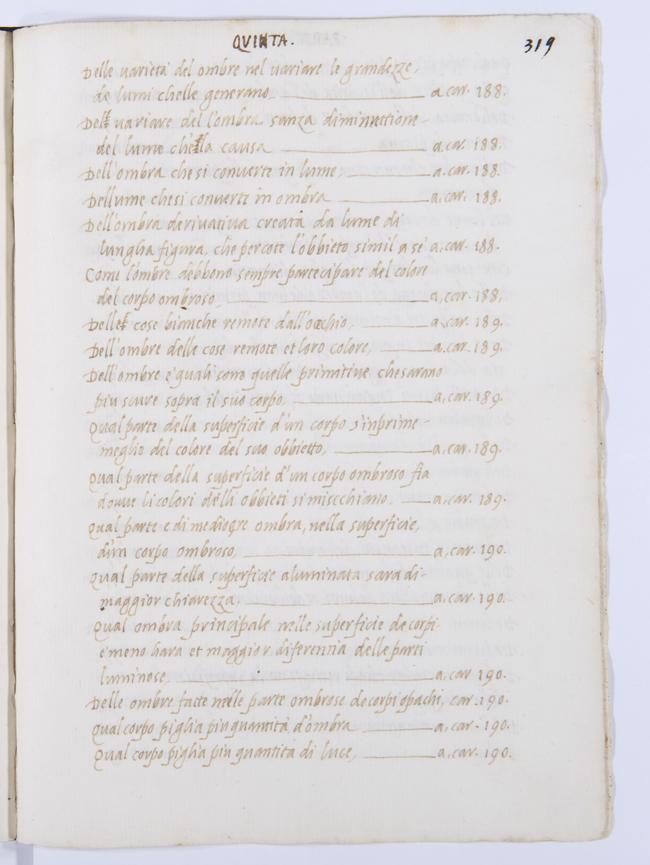 QUINTA.
319
Delle varieta del ombre nel variare le grandezze,
de lumi chelle generano a car. 188.
Dell variare del l'ombra sanza diminuttione
del lume che lla causa a car. 188.
Dell'ombra chesi converte in lume, a. car. 188.
Dellume chesi converte in ombra a. car. 188.
Dell'ombra derivativa creata da lume di
lungha figura, che percote l'obbieto simil a sé a, car. 188.
Come l'ombre debbono sempre partecipare del colore
del corpo ombroso, a, car. 188,
Delle cose bianche remote dall'occhio, a, car. 189.
Dell'ombre delle cose remote et loro colore, a. car. 189.
Dell'ombre e quali sono quelle primitive che sarano
piu scure sopra il suo corpo a, car. 189.
Qual parte della superficie d'un corpo s'inprime
meglio del colore del suo obbietto, a, car. 189.
Qual parte della superficie d'un corpo ombroso fia
dove li colori delli obbieti si miscchiano a, car. 189.
Qual parte e di mediogre ombra, nella superficie,
d'un corpo ombroso, a, car. 190.
Qual parte della superficie aluminata sara di
maggior chiarezza, a, car. 190.
Qual ombra principale nelle superficie de corpi
e meno hara et maggior diferentia delle parti
luminose, a. car. 190.
Delle ombre fatte nelle parte ombrose de corpi opachi, car. 190.
Qual corpo piglia piu quantità d'ombra a, car. 190.
Qual corpo piglia piu quantita di luce, a, car. 190.